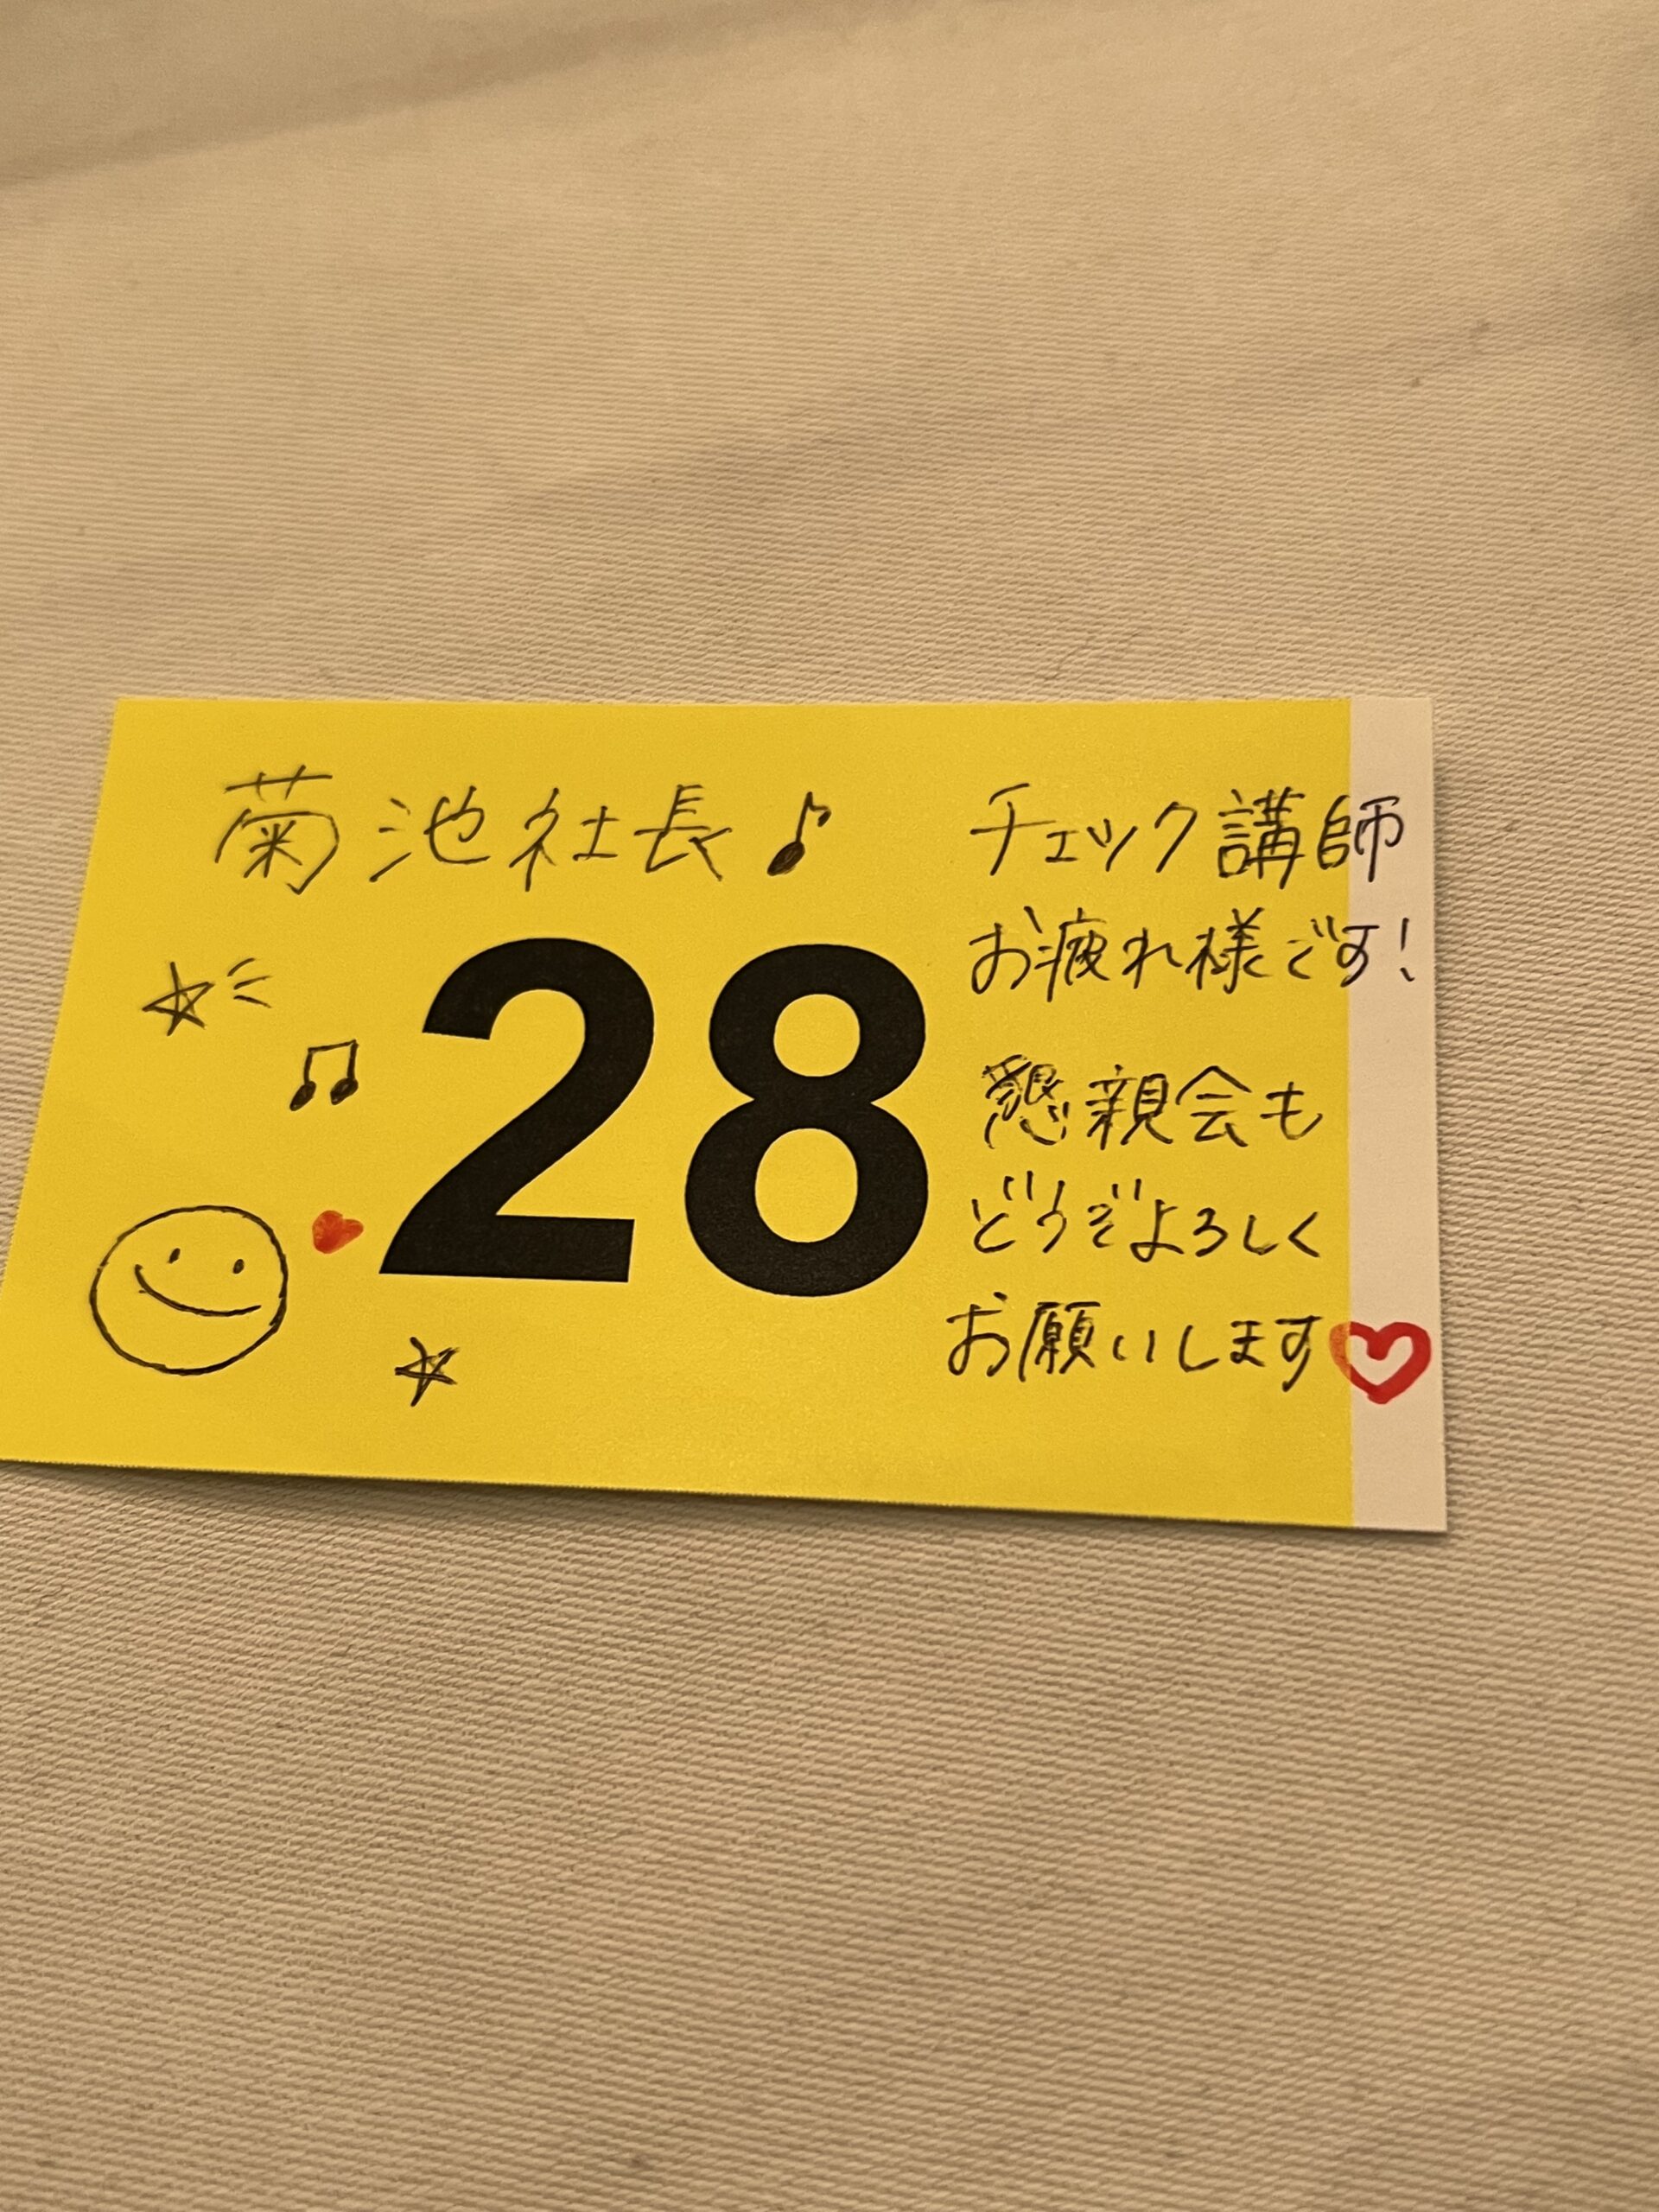 菊池社長♪
28
チェック講師
お疲れ様です!
懇親会も
どうぞよろしく
お願いします♡